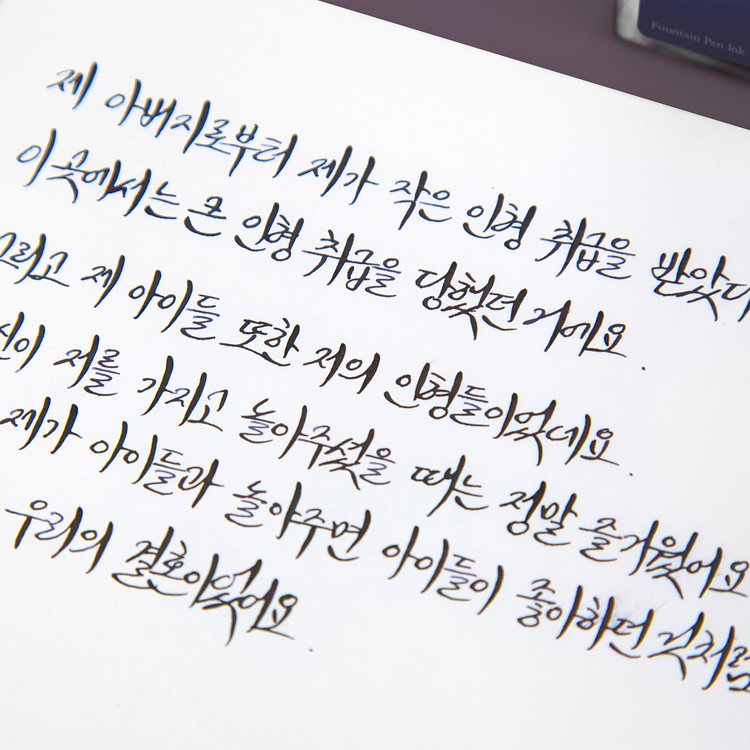 Fountain Pen Ink
제 아버지로부터 제가 작은 인형 취급을 받았다
이 곳에서는 큰 인형 취급을 당했던 거에요.
그리고 제 아이들 또한 저의 인형들이었데요.
신이 저를 가지고 놀아주셨을 때는 정말 즐거웠어요
제가 아이들과 놀아주면 아이들이 좋아하던 것처럼
우리의 결혼이었어요.